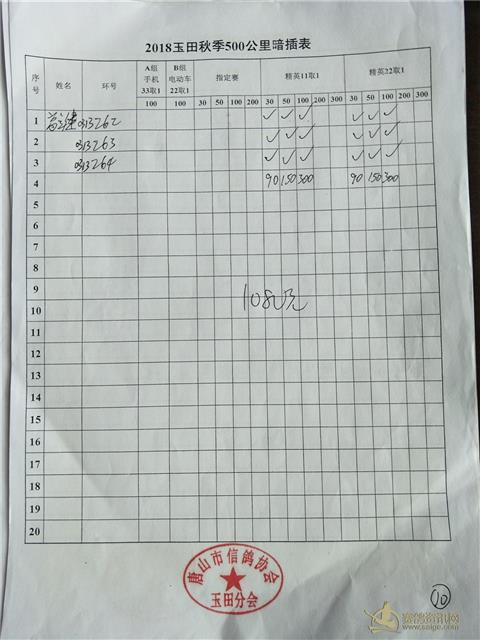 2018玉田秋季500公里暗插表
序号 姓名 环号 A组手机33取1 B组电动车22取1 指定赛 精英11取1 精英22取1
100 100 30 50 100 200 30 50 100 200 300 30 50 100 200 300
1 0313262 ✓ ✓ ✓ ✓ ✓ ✓
2 0313263 ✓ ✓ ✓ ✓ ✓ ✓
3 0313264 ✓ ✓ ✓ ✓ ✓ ✓
4 90 150 300 90 150 300
5
6
7
8
9
1080元
10
11
12
13
14
15
16
17
18
19
20
唐山市信鸽协会
玉田分会
10
赛鸽资讯网
www.saige.com